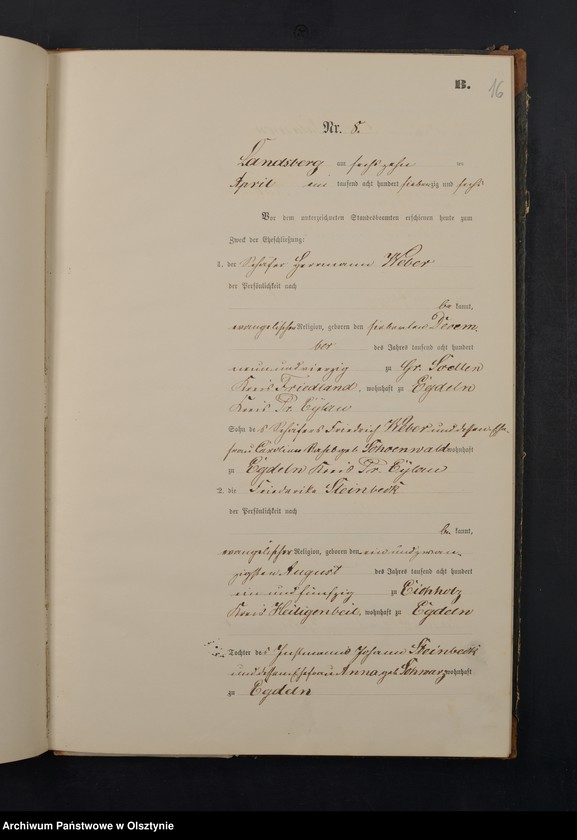 B.
16
Nr. 8.
Landsberg am sechszehn ten
April ein tausend acht hundert siebenzig und sechs
Vor dem unterzeichneten Standesbeamten erschienen heute zum
Zweck der Eheschließung:
1. der Schäfer Hermann Weber
der Persönlichkeit nach
be kannt,
evangelischer Religion, geboren den siebenten Decem-
ber des Jahres tausend acht hundert
neunundvierzig zu Gr. Sollen
Kreis Friedland, wohnhaft zu Egdeln
Kreis Pr. Eylau
Sohn des Schäfers Friedrich Weber und dessen Ehe-
frau Caroline geb. Schoenwald wohnhaft
zu Egdeln Kreis Pr. Eylau
2. die Friederike Steinbeck
der Persönlichkeit nach
be kannt,
evangelischer Religion, geboren den einundzwan-
zigsten August des Jahres tausend acht hundert
einundfünfzig zu Eichholz
Kreis Heiligenbeil, wohnhaft zu Egdeln
Tochter des Instmanns Johann Steinbeck
und dessen Ehefrau Anna geb. Schwarz wohnhaft
zu Egdeln
Archiwum Państwowe w Olsztynie